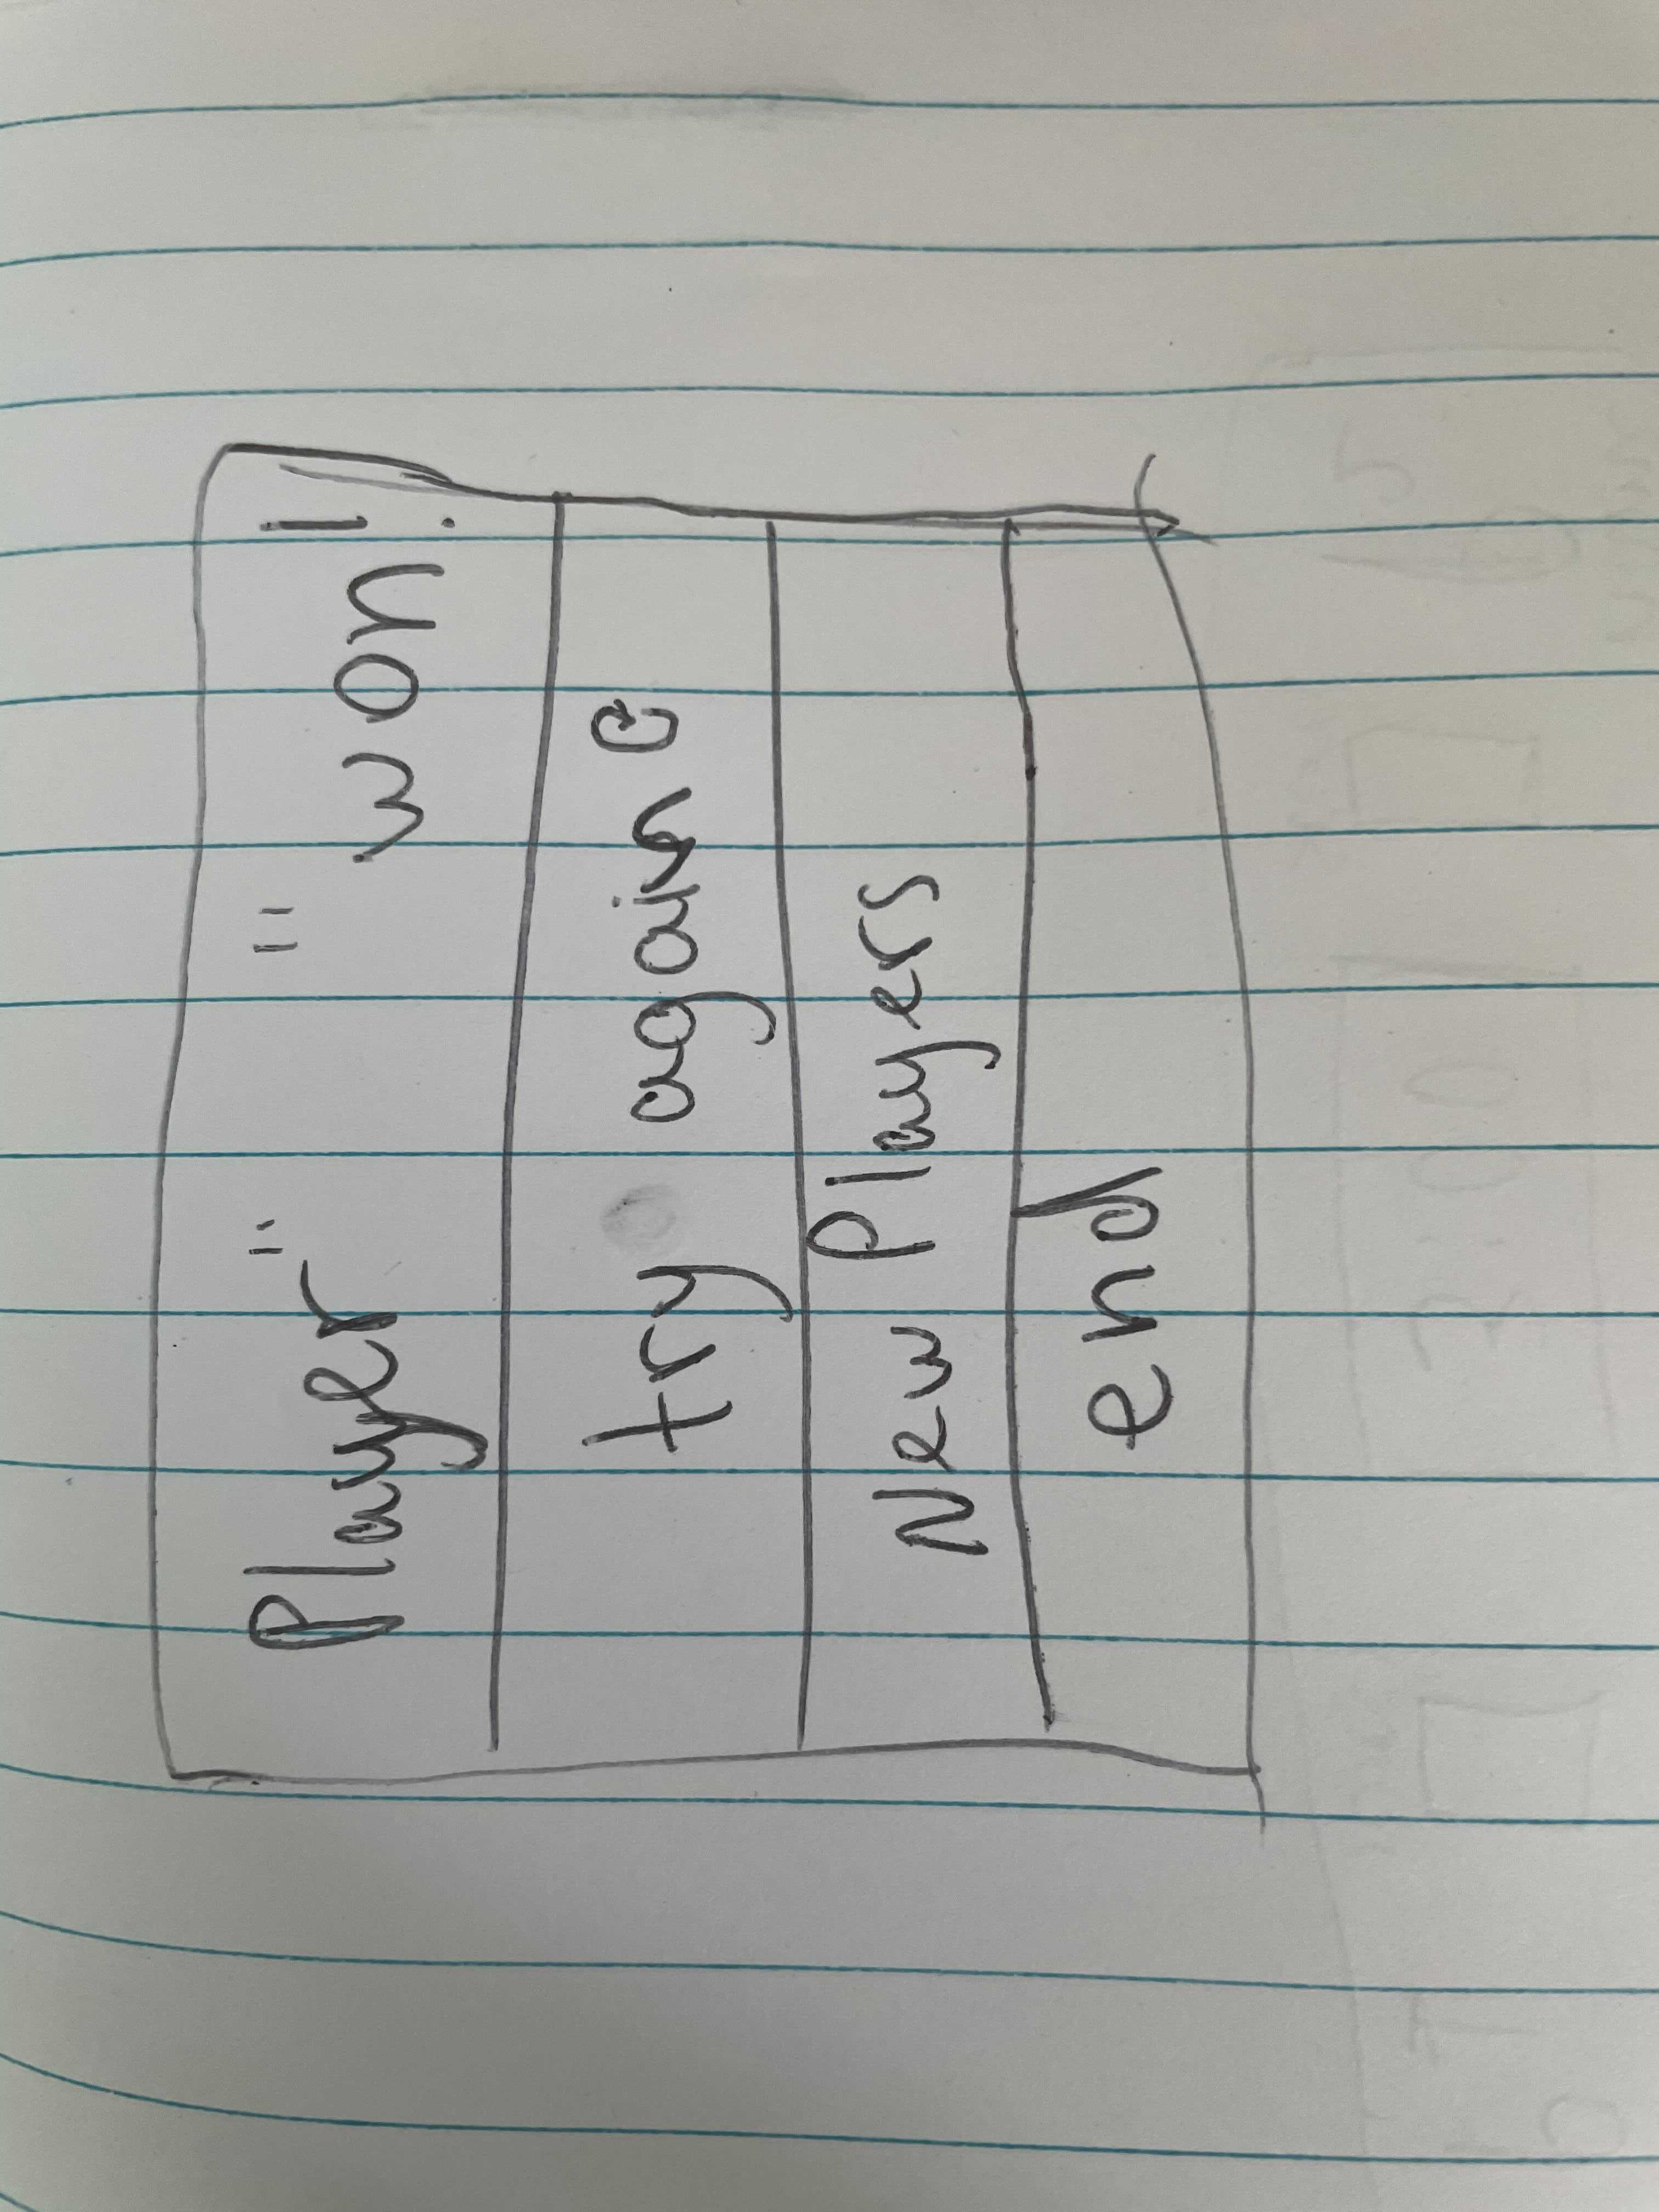 Player "   " won!
try again
New Players
end